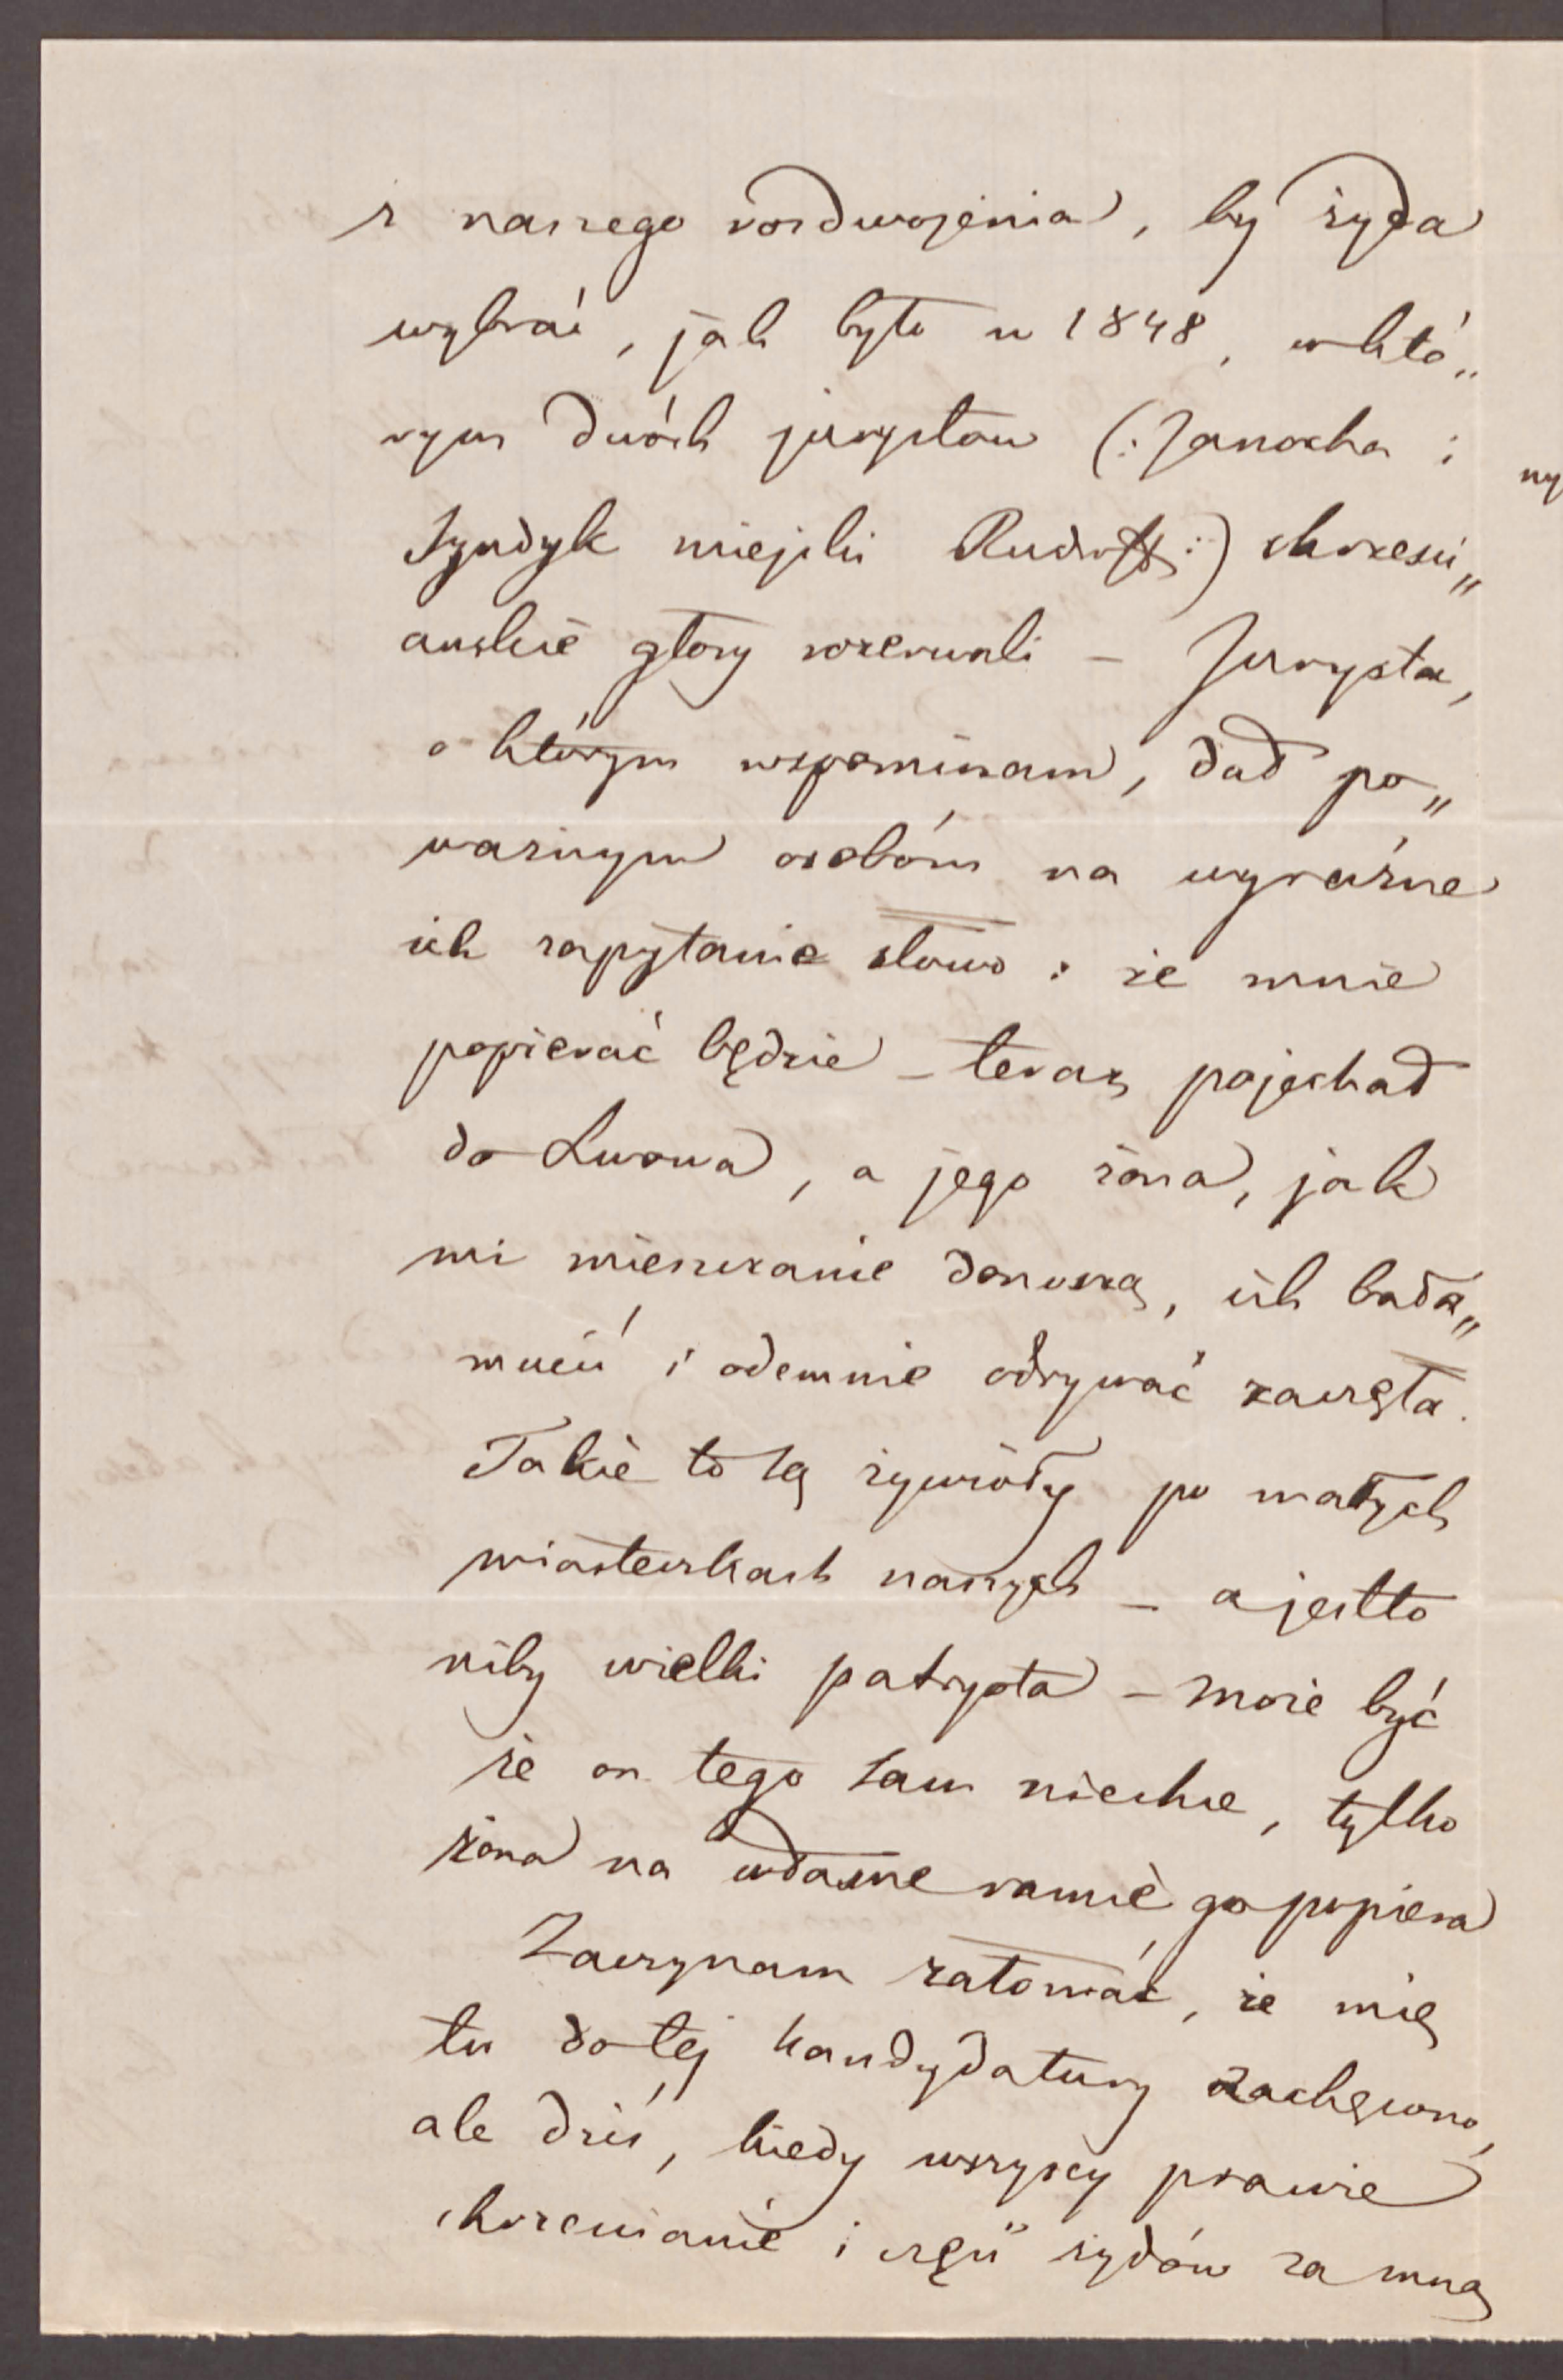 z naszego rozdwojenia, by żyda
wybrać, jak było w 1848, w któ„
rym dwóch jurystów (: Janocha i
Syndyk miejski :) chrześci„
ańskie głosy rozerwali – Jurysta,
o którym wspominam, dał po„
ważnym osobóm na wyraźne
ich zapytanie słowo : że mnie
popierać będzie – teraz pojechał
do Lwowa, a jego żona, jak
mi mieszczanie donoszą, ich bała„
mucić i odemnie odrywać zaczęła.
Takie to są żywioły po małych
miasteczkach naszych – a jestto
niby wielki patryota – może być
że on tego sam niechce, tylko
żona na własne ramię go popiera
Zaczynam żałować, że mię
tu do tej kandydatury zachęcono,
ale dziś, kiedy wszyscy prawie
chrześcianie i część żydów za mną
ny